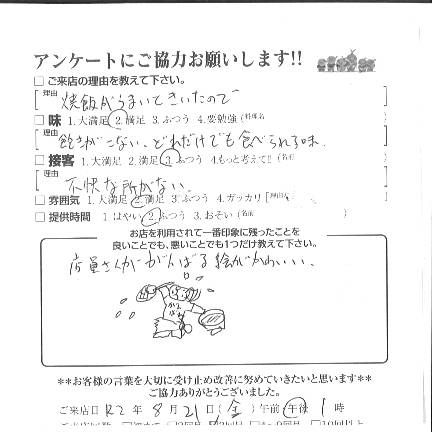 アンケートにご協力お願いします!!
□ ご来店の理由を教えて下さい。
理由 焼飯がうまいてきいたので
□ 味 1.大満足 2.満足 3.ふつう 4.要勉強 (料理名
理由 飽きがこない、どれだけでも食べられる味、
□ 接客 1.大満足 2.満足 3.ふつう 4.もっと考えて!! (名前
理由 不快な所がない。
□ 雰囲気 1.大満足 2.満足 3.ふつう 4.ガッカリ [理由
□ 提供時間 1.はやい 2.ふつう 3.おそい (名前 )
お店を利用されて一番印象に残ったことを
良いことでも、悪いことでも1つだけ教えて下さい。
店員さんががんばる絵がかわいい、、
**お客様の言葉を大切に受け止め改善に努めていきたいと思います**
ご協力ありがとうございました。
ご来店日 R2年 8月 21日(金) 午前 午後 1時